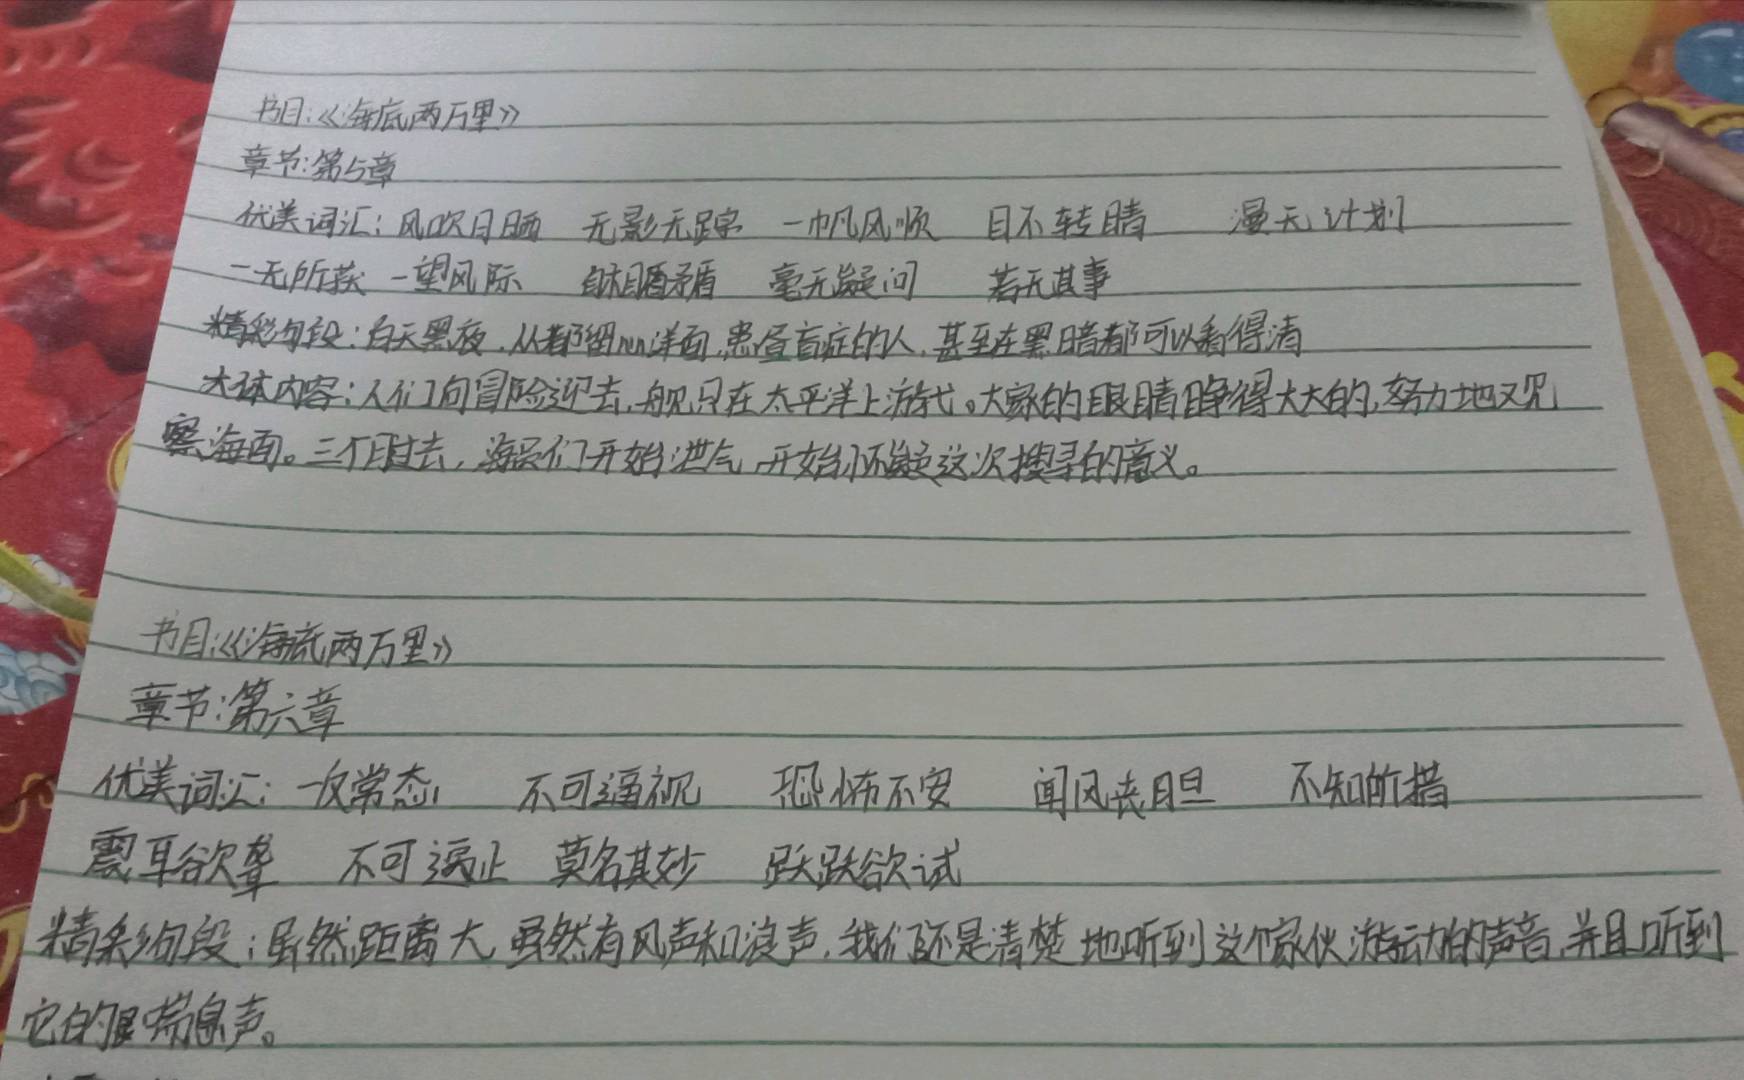 书目:《海底两万里》
章节:第5章
优美词汇:风吹日晒 无影无踪 一帆风顺 目不转睛 漫天计划
一无所获 一望风际 自相矛盾 毫无疑问 若无其事
精彩句段:白天黑夜,从都留心洋面,患昼盲症的人,甚至在黑暗都可以看得清
大体内容:人们向冒险迎去,舰只在太平洋上游弋。大家的眼睛睁得大大的,努力地观
察海面。三个月过去,海员们开始泄气,开始怀疑这次搜寻的意义。
书目:《海底两万里》
章节:第六章
优美词汇:一改常态 不可逼视 恐怖不安 闻风丧胆 不知所措
震耳欲聋 不可遏止 莫名其妙 跃跃欲试
精彩句段:虽然距离大,虽然有风声和浪声,我们还是清楚地听到这个家伙游动的声音,并且听到
它的喘息声。